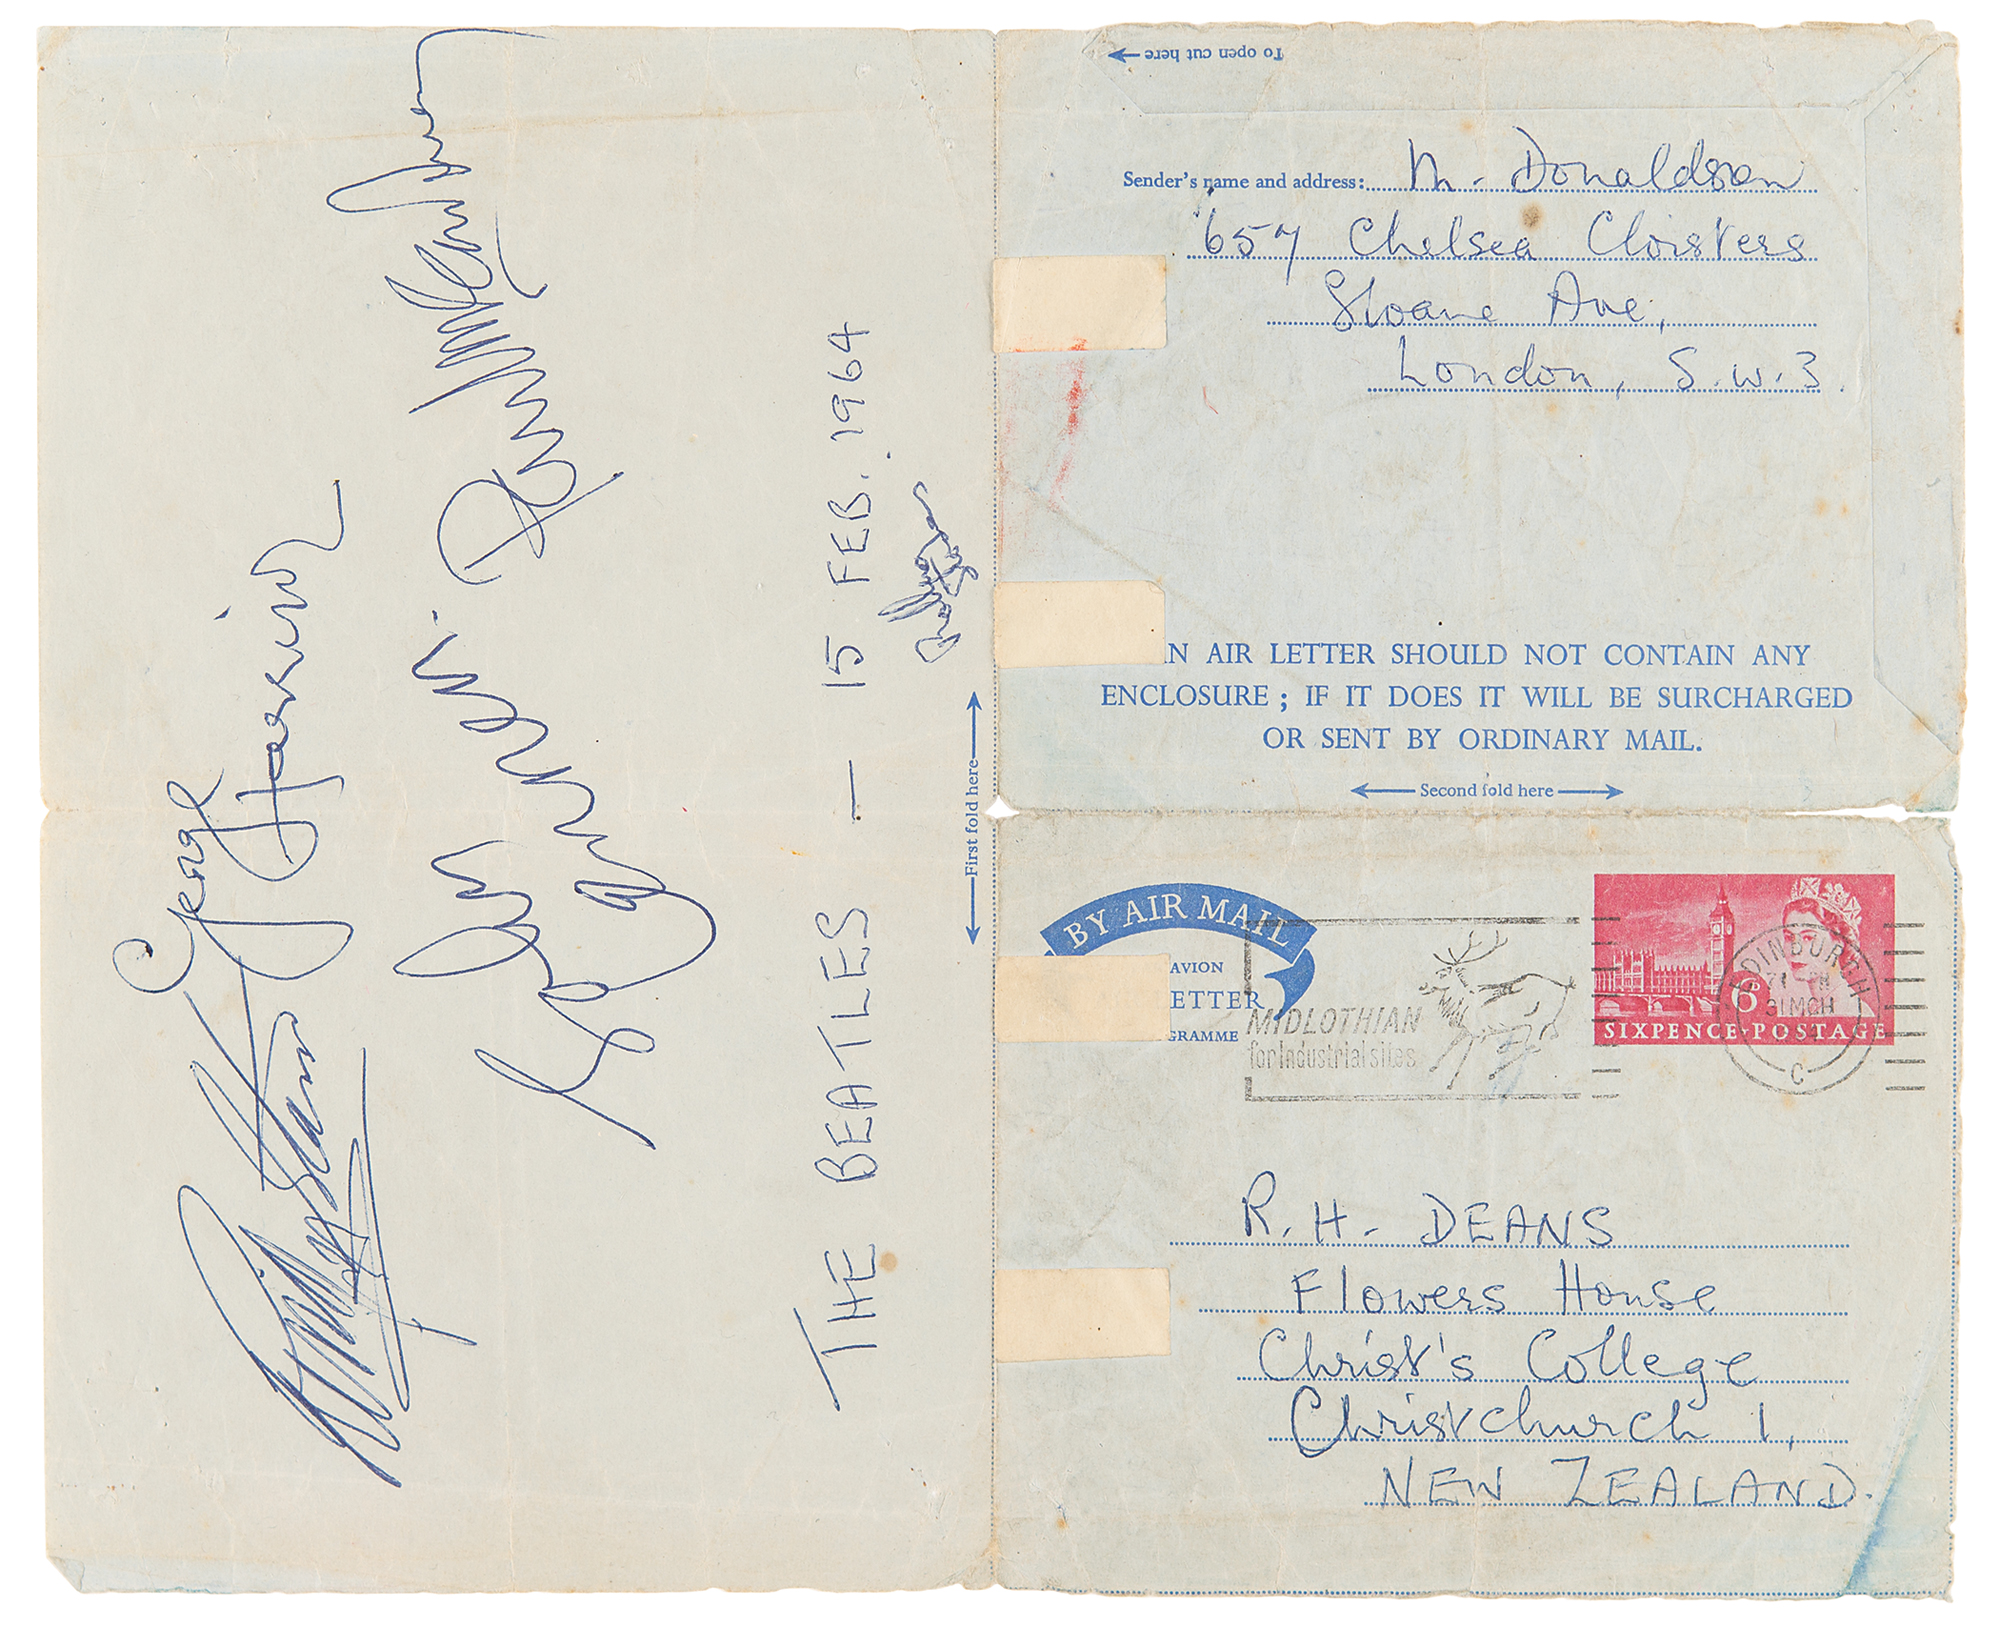 George
Harrison
Ringo Starr
Paul McCartney
John
Lennon
THE BEATLES — 15 FEB. 1964
←First fold here→
To open cut here
Sender's name and address: M. Donaldson
657 Chelsea Cloisters
Sloane Ave,
London, S.W.3.
N AIR LETTER SHOULD NOT CONTAIN ANY
ENCLOSURE ; IF IT DOES IT WILL BE SURCHARGED
OR SENT BY ORDINARY MAIL.
←Second fold here→
BY AIR MAIL
AVION
ETTER
GRAMME
MIDLOTHIAN
for Industrial sites
EDINBURGH
31 MCH
C
6D
SIXPENCE·POSTAGE
R. H. DEANS
Flowers House
Christ's College
Christchurch 1,
NEW ZEALAND.